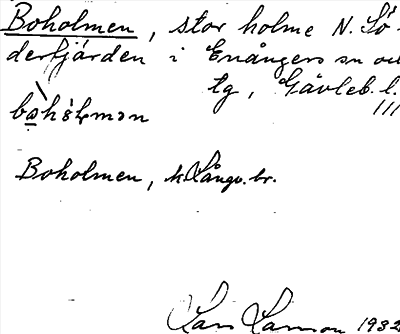 Boholmen, stor holme N. Sö-
derfjärden i Enångers sn och
tg, Gävleb. l.
III
bohólmən
Boholmen, k. Långv. br.
Lars Larsson 1932